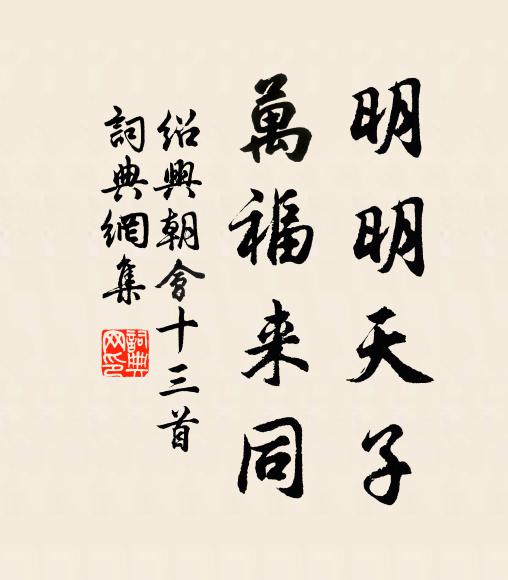 明明天子
萬福来同
紹興朝會十三首
詞典網集
詞典
网印